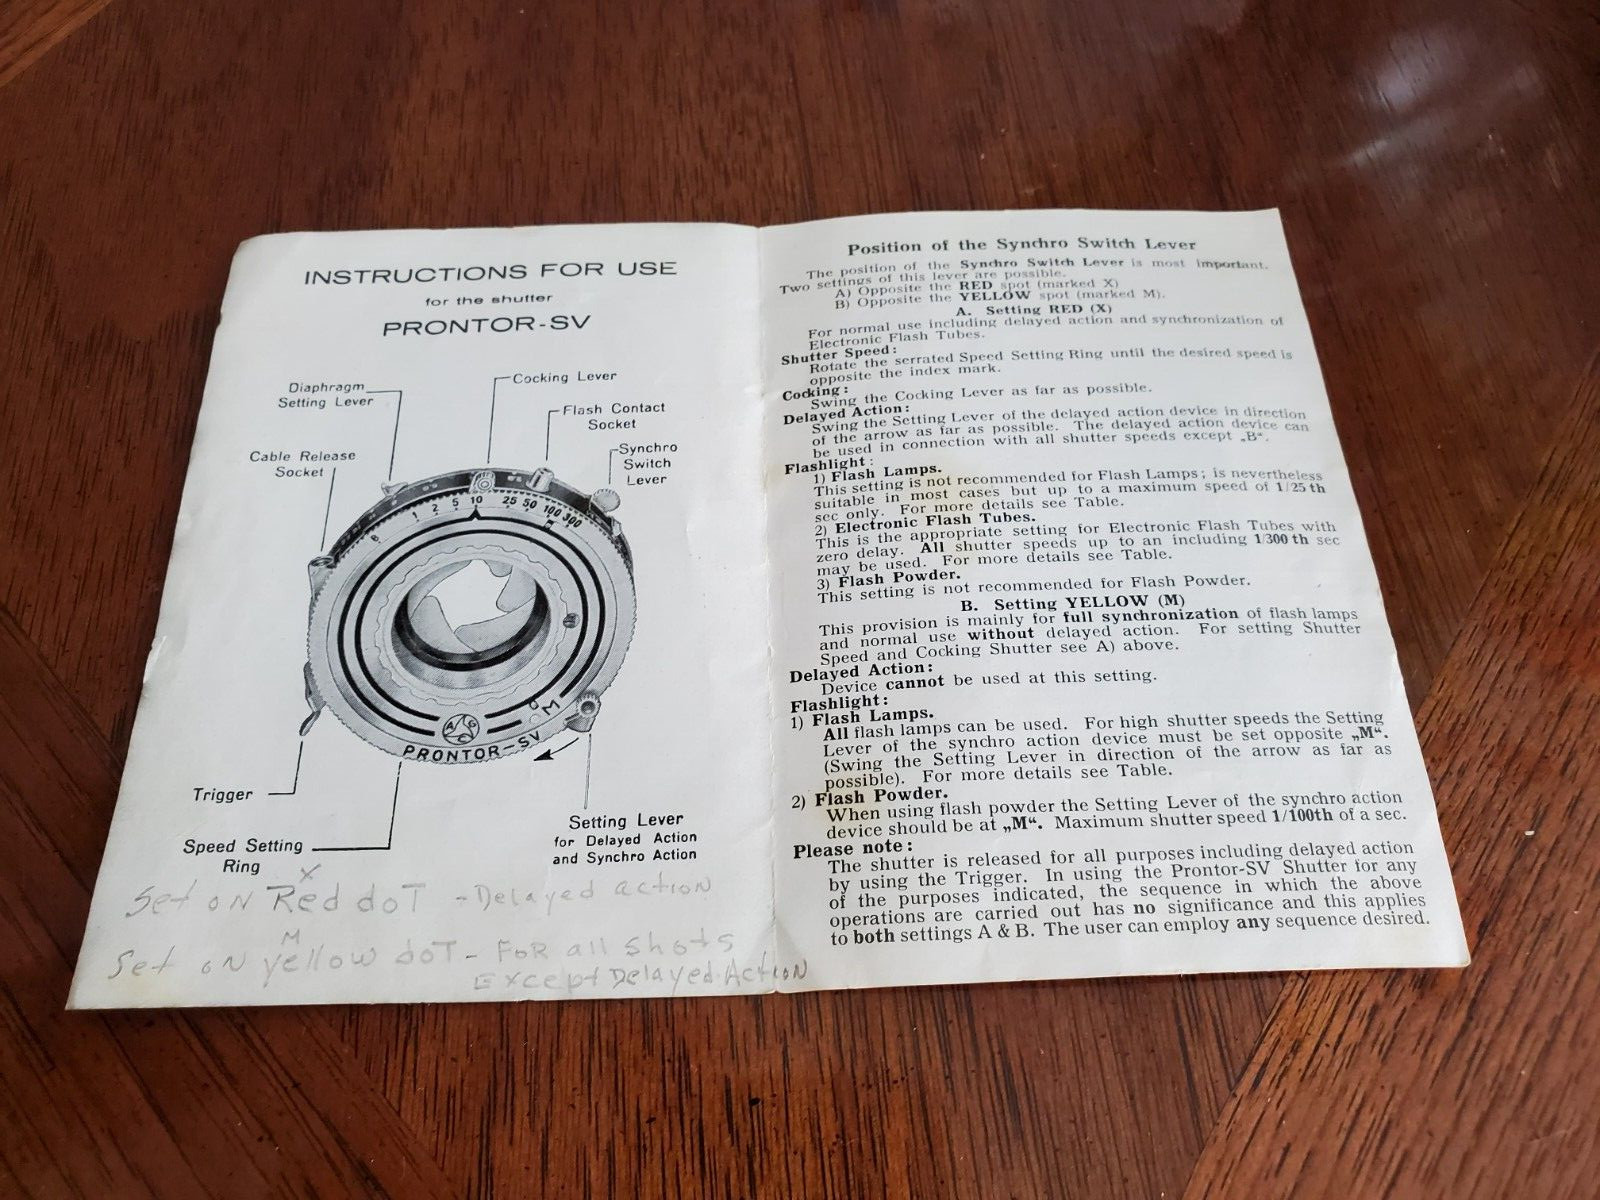 INSTRUCTIONS FOR USE
for the shutter
PRONTOR-SV
Diaphragm
Setting Lever
Cocking Lever
Flash Contact
Socket
Cable Release
Socket
Synchro
Switch
Lever
B 1 2 5 10 25 50 100 300
M
A G C
PRONTOR-SV
Trigger
Speed Setting
Ring
Setting Lever
for Delayed Action
and Synchro Action
X
Set on Red doT - Delayed action
M
Set on yellow doT - FoR all shots
Except Delayed Action
Position of the Synchro Switch Lever
The position of the Synchro Switch Lever is most important.
Two settings of this lever are possible.
A) Opposite the RED spot (marked X)
B) Opposite the YELLOW spot (marked M).
A. Setting RED (X)
For normal use including delayed action and synchronization of
Electronic Flash Tubes.
Shutter Speed:
Rotate the serrated Speed Setting Ring until the desired speed is
opposite the index mark.
Cocking:
Swing the Cocking Lever as far as possible.
Delayed Action:
Swing the Setting Lever of the delayed action device in direction
of the arrow as far as possible. The delayed action device can
be used in connection with all shutter speeds except „B“.
Flashlight:
1) Flash Lamps.
This setting is not recommended for Flash Lamps; is nevertheless
suitable in most cases but up to a maximum speed of 1/25 th
sec only. For more details see Table.
2) Electronic Flash Tubes.
This is the appropriate setting for Electronic Flash Tubes with
zero delay. All shutter speeds up to an including 1/300 th sec
may be used. For more details see Table.
3) Flash Powder.
This setting is not recommended for Flash Powder.
B. Setting YELLOW (M)
This provision is mainly for full synchronization of flash lamps
and normal use without delayed action. For setting Shutter
Speed and Cocking Shutter see A) above.
Delayed Action:
Device cannot be used at this setting.
Flashlight:
1) Flash Lamps.
All flash lamps can be used. For high shutter speeds the Setting
Lever of the synchro action device must be set opposite „M“.
(Swing the Setting Lever in direction of the arrow as far as
possible). For more details see Table.
2) Flash Powder.
When using flash powder the Setting Lever of the synchro action
device should be at „M“. Maximum shutter speed 1/100th of a sec.
Please note:
The shutter is released for all purposes including delayed action
by using the Trigger. In using the Prontor-SV Shutter for any
of the purposes indicated, the sequence in which the above
operations are carried out has no significance and this applies
to both settings A & B. The user can employ any sequence desired.